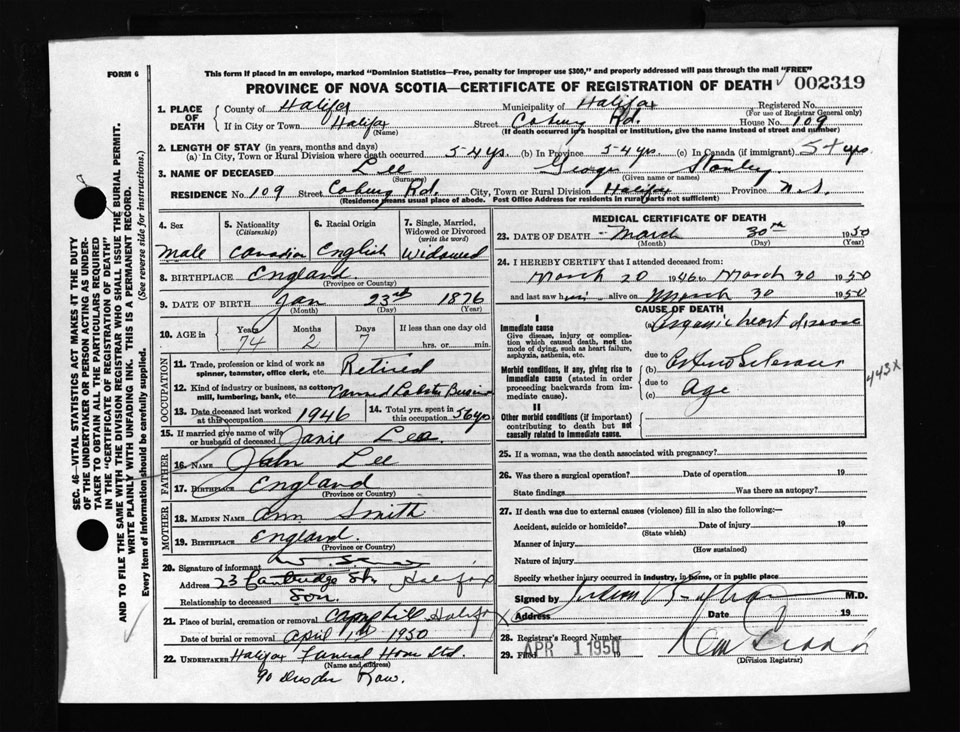 FORM 6
This form if placed in an envelope, marked "Dominion Statistics—Free, penalty for improper use $300," and properly addressed will pass through the mail "FREE"
PROVINCE OF NOVA SCOTIA—CERTIFICATE OF REGISTRATION OF DEATH 002319
1. PLACE OF DEATH
County of Halifax Municipality of Halifax Registered No.
(For use of Registrar General only)
If in City or Town Halifax Street Coburg Rd. House No. 109
(Name) (If death occurred in a hospital or institution, give the name instead of street and number)
2. LENGTH OF STAY (in years, months and days)
(a) In City, Town or Rural Division where death occurred 54 ys. (b) In Province 54 ys. (c) In Canada (if immigrant) 54 yrs.
3. NAME OF DECEASED Lee George Stanley
(Surname) (Given name or names)
RESIDENCE No. 109 Street Coburg Rd. City, Town or Rural Division Halifax Province N.S.
(Residence means usual place of abode. Post Office Address for residents in rural parts not sufficient)
4. Sex
male
5. Nationality (Citizenship)
Canadian
6. Racial Origin
English
7. Single, Married, Widowed or Divorced (write the word)
Widowed
8. BIRTHPLACE England
(Province or Country)
9. DATE OF BIRTH Jan 23rd 1876
(Month) (Day) (Year)
10. AGE in Years Months Days If less than one day old
74 2 7 hrs. or min.
OCCUPATION
11. Trade, profession or kind of work as spinner, teamster, office clerk, etc. Retired
12. Kind of industry or business, as cotton mill, lumbering, bank, etc. Canned Lobster Business
13. Date deceased last worked at this occupation 1946
14. Total yrs. spent in this occupation 56 yrs
15. If married give name of wife or husband of deceased Janie Lee
FATHER
16. NAME John Lee
17. BIRTHPLACE England
(Province or Country)
MOTHER
18. MAIDEN NAME Ann Smith
19. BIRTHPLACE England.
(Province or Country)
20. Signature of informant
Address 23 Cambridge St. Halifax
Relationship to deceased Son.
21. Place of burial, cremation or removal Camphill Halifax
Date of burial or removal April 1st 1950
22. UNDERTAKER Halifax Funeral Home Ltd.
(Name and address)
90 Dresden Row.
MEDICAL CERTIFICATE OF DEATH
23. DATE OF DEATH March 30th 1950
(Month) (Day) (Year)
24. I HEREBY CERTIFY that I attended deceased from:
March 20 1946 to March 30 1950
and last saw him alive on March 30 1950
CAUSE OF DEATH
I
Immediate cause
Give disease, injury or complication which caused death, not the mode of dying, such as heart failure, asphyxia, asthenia, etc.
(a) Organic heart disease
due to
Morbid conditions, if any, giving rise to immediate cause (stated in order proceeding backwards from immediate cause).
(b)
due to
(c) Age
443X
II
Other morbid conditions (if important) contributing to death but not causally related to immediate cause.
25. If a woman, was the death associated with pregnancy?
26. Was there a surgical operation? Date of operation 19
State findings Was there an autopsy?
27. If death was due to external causes (violence) fill in also the following:—
Accident, suicide or homicide? Date of injury 19
(State which)
Manner of injury
(How sustained)
Nature of injury
Specify whether injury occurred in industry, in home, or in public place
Signed by M.D.
Address Date 19
28. Registrar's Record Number
29. Filed APR 1 1950
(Division Registrar)
SEC. 46—VITAL STATISTICS ACT MAKES IT THE DUTY OF THE UNDERTAKER OR PERSON ACTING AS UNDERTAKER TO OBTAIN ALL THE PARTICULARS REQUIRED IN THE "CERTIFICATE OF REGISTRATION OF DEATH"
AND TO FILE THE SAME WITH THE DIVISION REGISTRAR WHO SHALL ISSUE THE BURIAL PERMIT.
WRITE PLAINLY WITH UNFADING INK. THIS IS A PERMANENT RECORD.
Every item of information should be carefully supplied. (See reverse side for instructions.)